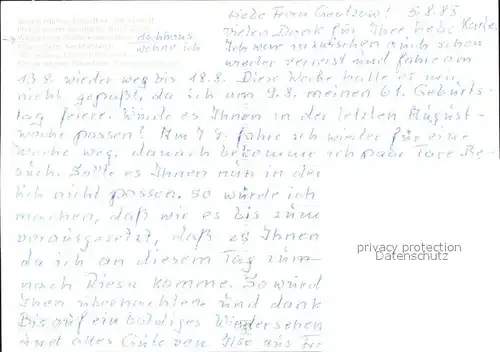 Liebe Frau 5.8.85
Vielen Dank für Ihre liebe Karte.
dachhaus
wohne ich
Ich war inzwischen auch schon
wieder verreist und fahre am
13.8. wieder weg bis 18.8. Diese Woche hätte es mir
nicht gepaßt, da ich am 9.8. meinen 61. Geburts-
tag feiere. Würde es Ihnen in der letzten August-
woche passen? Am 7.9. fahre ich wieder für eine
Woche weg, danach bekomme ich paar Tage Be-
such. Sollte es Ihnen nun in der
nicht passen, so würde ich
machen, daß wir es bis zum
vorausgesetzt, daß es Ihnen
da ich an diesem Tag zum
nach Riesa komme. So würd
Ihnen übernachten und dank
Bis auf ein baldiges Wiedersehen
und alles Gute von Ilse aus
privacy protection
Datenschutz